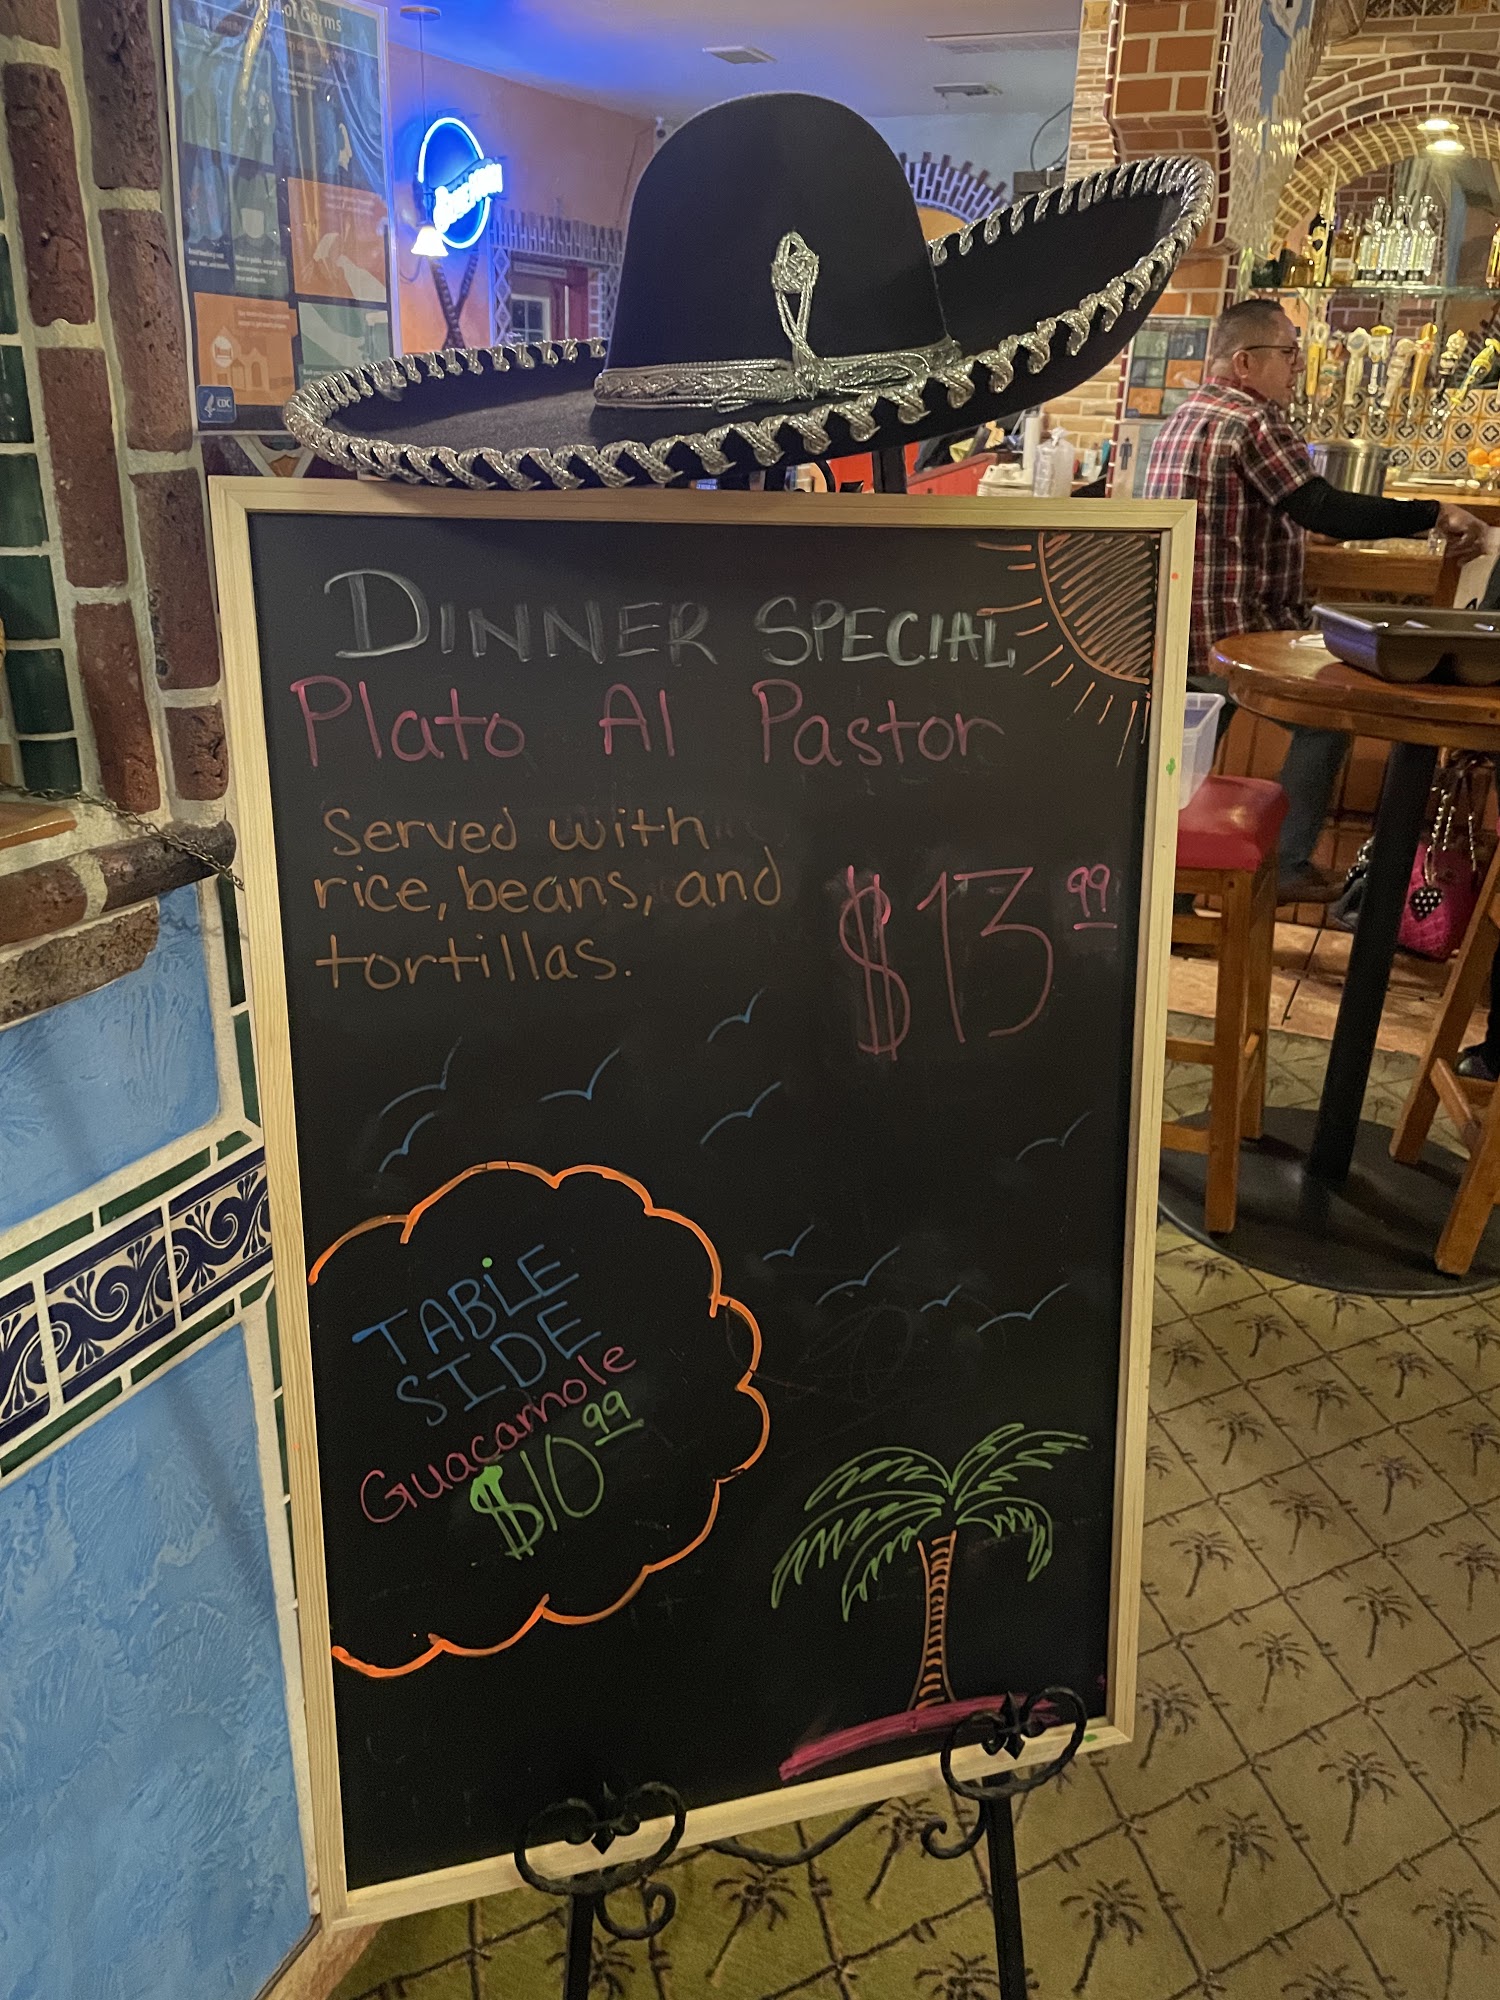 of Germs
CDC
DINNER SPECIAL
Plato Al Pastor
Served with
rice, beans, and
tortillas.
$13.99
TABLE
SIDE
Guacamole
$10.99